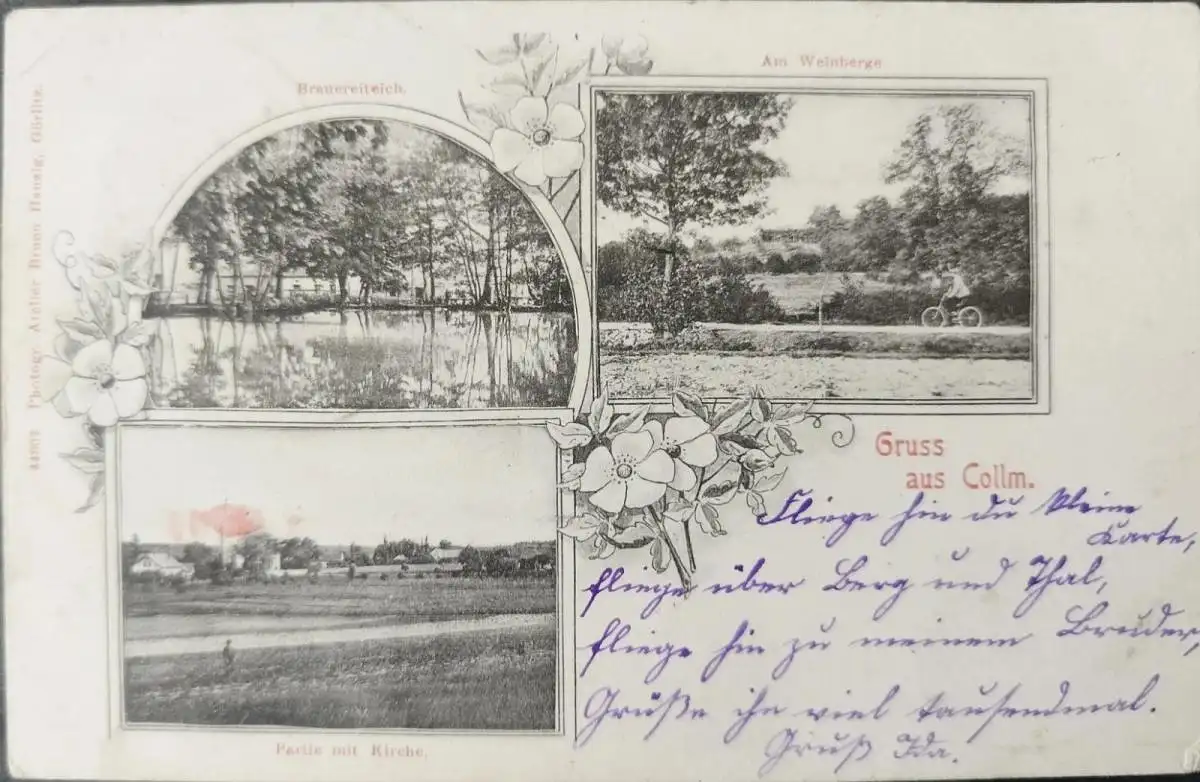 Brauereiteich.
Am Weinberge
Photogr. Atelier Bruno Hansig, Görlitz.
Gruss
aus Collm.
Fliege hin du kleine
Karte,
fliege über Berg und Thal,
fliege hin zu meinem Bruder,
Grüße ihn viel tausendmal.
Gruß Ida.
Partie mit Kirche.